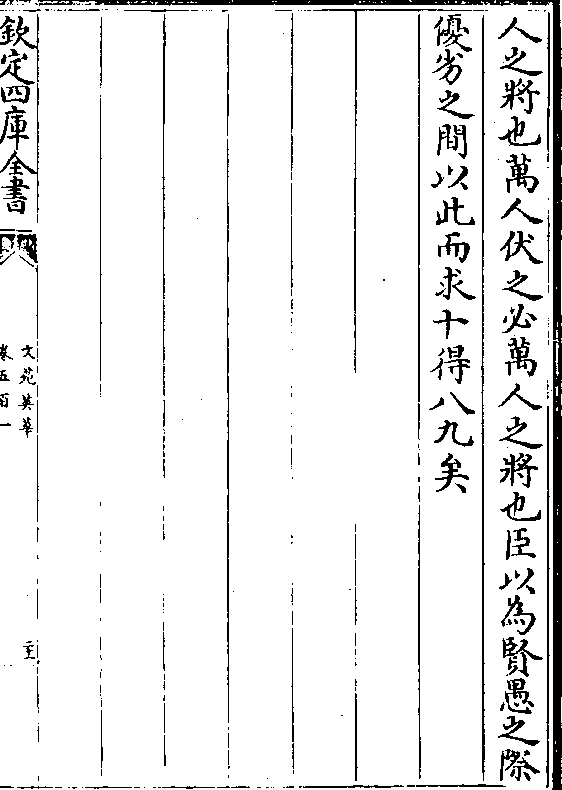 人之將也萬人伏之必萬人之將也臣以為賢愚之際
優劣之間以此而求十得八九矣
欽定四庫全書
文苑英華
卷五百一